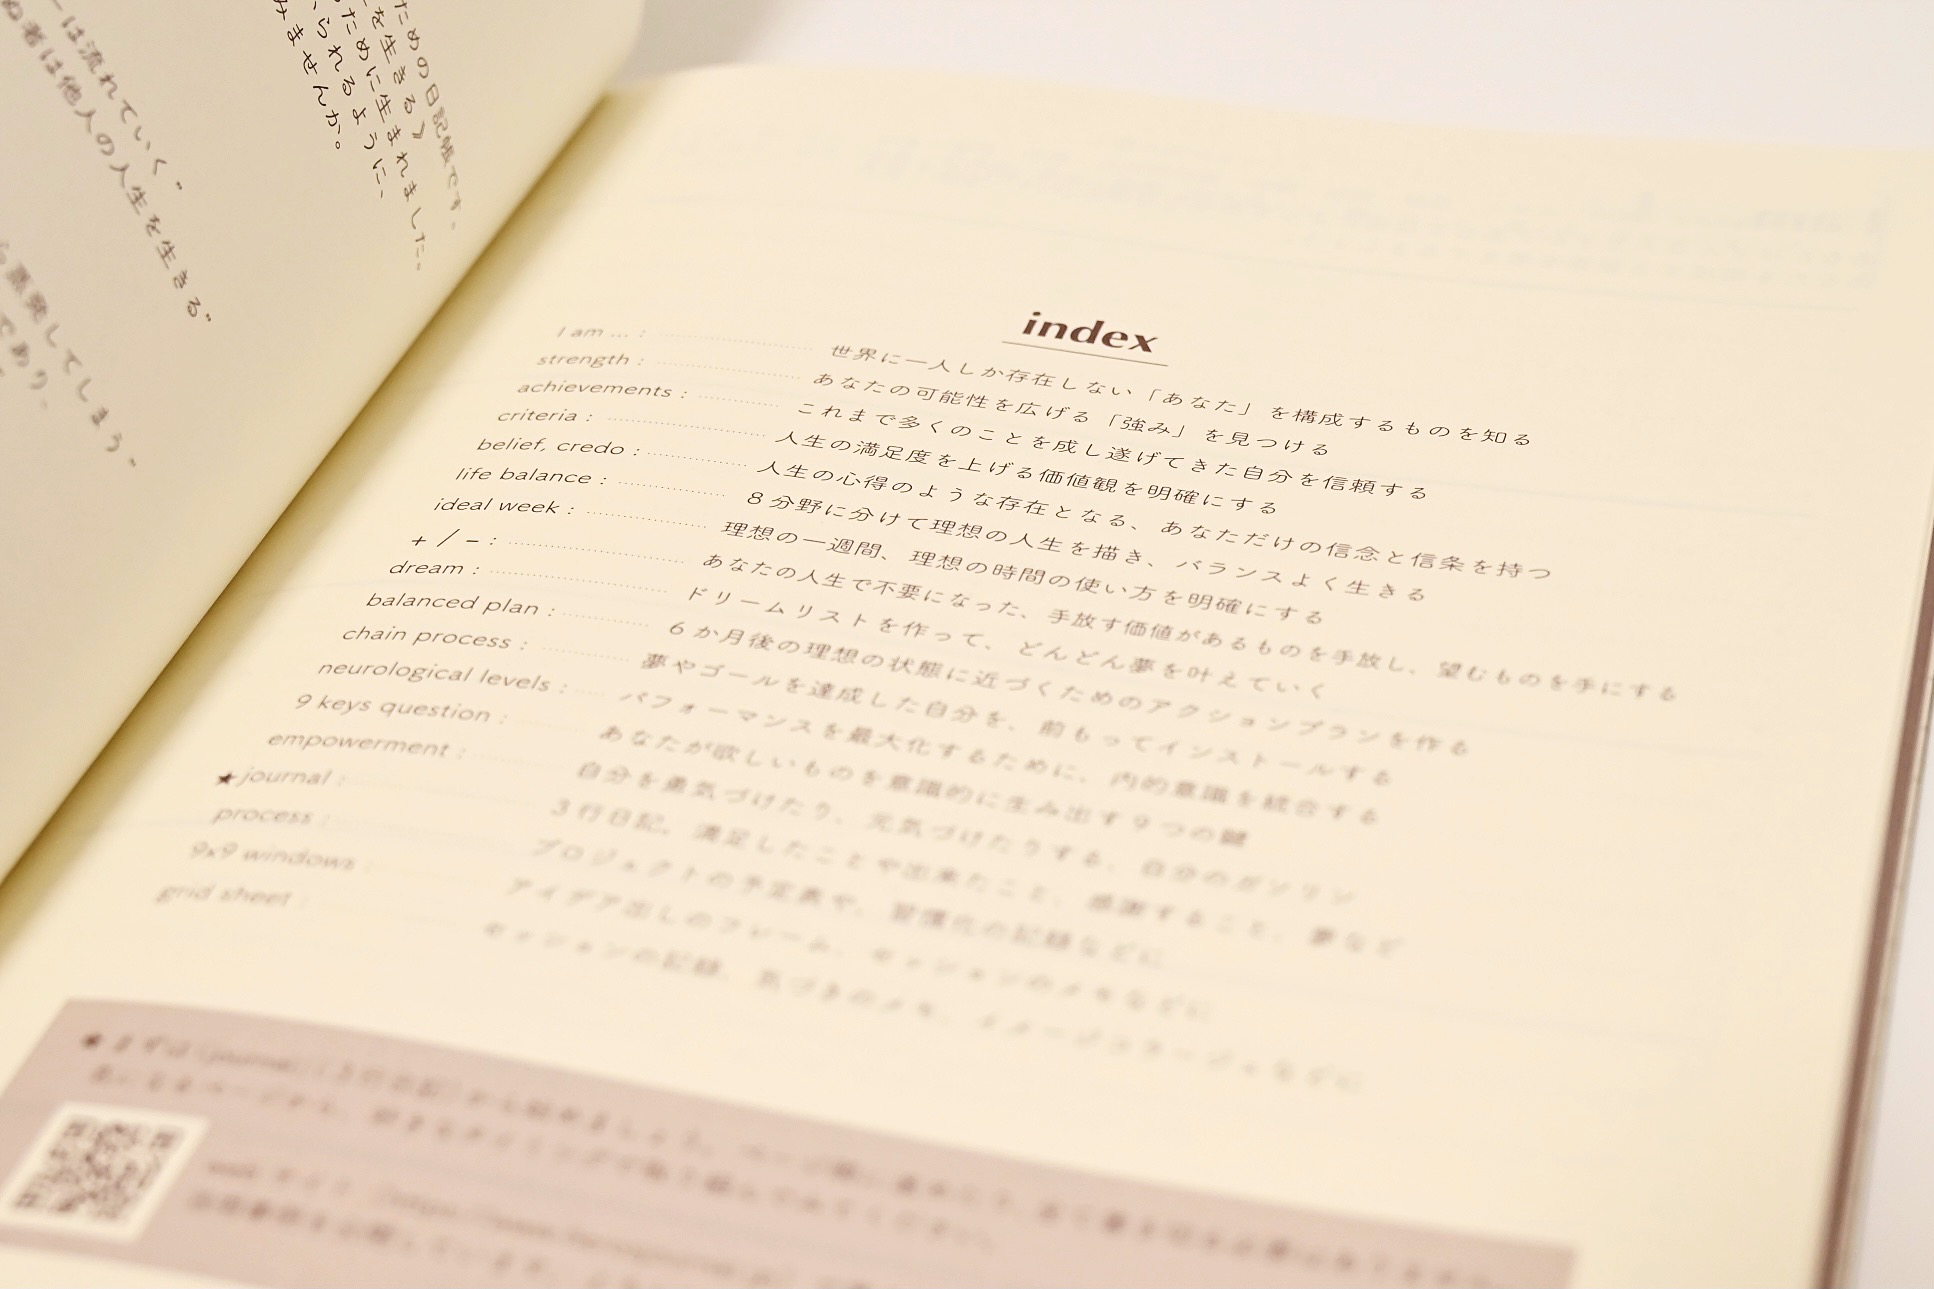 ための日記帳です。
を生きる》
ために生まれました。
られるように、
みませんか。
は流れていく"
者は他人の人生を生きる"
蒸発してしまう。
であり、
index
I am ... : 世界に一人しか存在しない「あなた」を構成するものを知る
strength : あなたの可能性を広げる「強み」を見つける
achievements : これまで多くのことを成し遂げてきた自分を信頼する
criteria : 人生の満足度を上げる価値観を明確にする
belief, credo : 人生の心得のような存在となる、あなただけの信念と信条を持つ
life balance : 8分野に分けて理想の人生を描き、バランスよく生きる
ideal week : 理想の一週間、理想の時間の使い方を明確にする
+ / − : あなたの人生で不要になった、手放す価値があるものを手放し、望むものを手にする
dream : ドリームリストを作って、どんどん夢を叶えていく
balanced plan : 6か月後の理想の状態に近づくためのアクションプランを作る
chain process : 夢やゴールを達成した自分を、前もってインストールする
neurological levels : パフォーマンスを最大化するために、内的意識を統合する
9 keys question : あなたが欲しいものを意識的に生み出す9つの鍵
empowerment : 自分を勇気づけたり、元気づけたりする、自分のガソリン
★journal : 3行日記。満足したことや出来たこと、感謝すること、夢など
process : プロジェクトの予定表や、習慣化の記録などに
9x9 windows : アイデア出しのフレーム、セッションのメモなどに
grid sheet : セッションの記録、気づきのメモ、イメージコラージュなどに